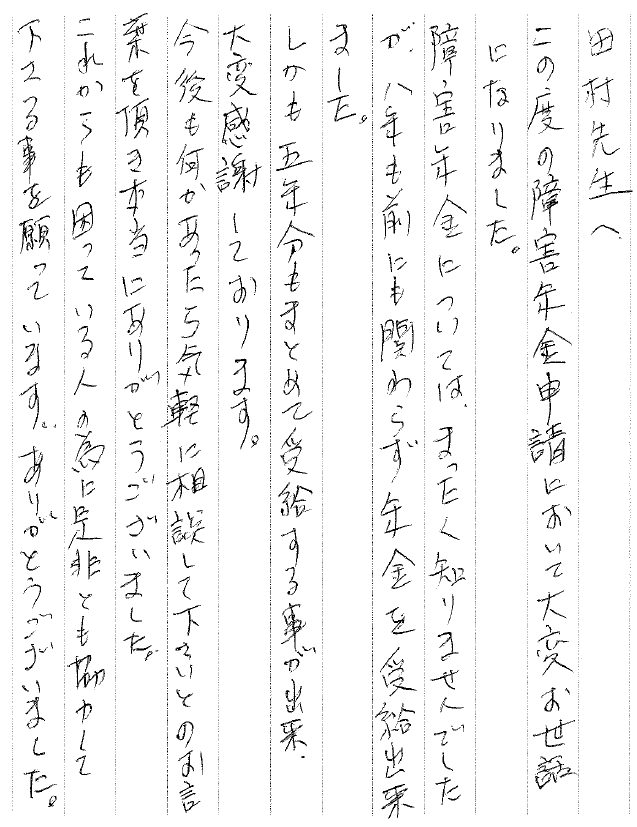 田村先生へ
この度の障害年金申請において大変お世話
になりました。
障害年金については、まったく知りませんでした
が、八年も前にも関わらず年金を受給出来
ました。
しかも五年分もまとめて受給する事が出来、
大変感謝しております。
今後も何かあったら気軽に相談して下さいとのお言
葉を頂き本当にありがとうございました。
これからも困っている人の為に是非とも協力して
下さる事を願っています。ありがとうございました。